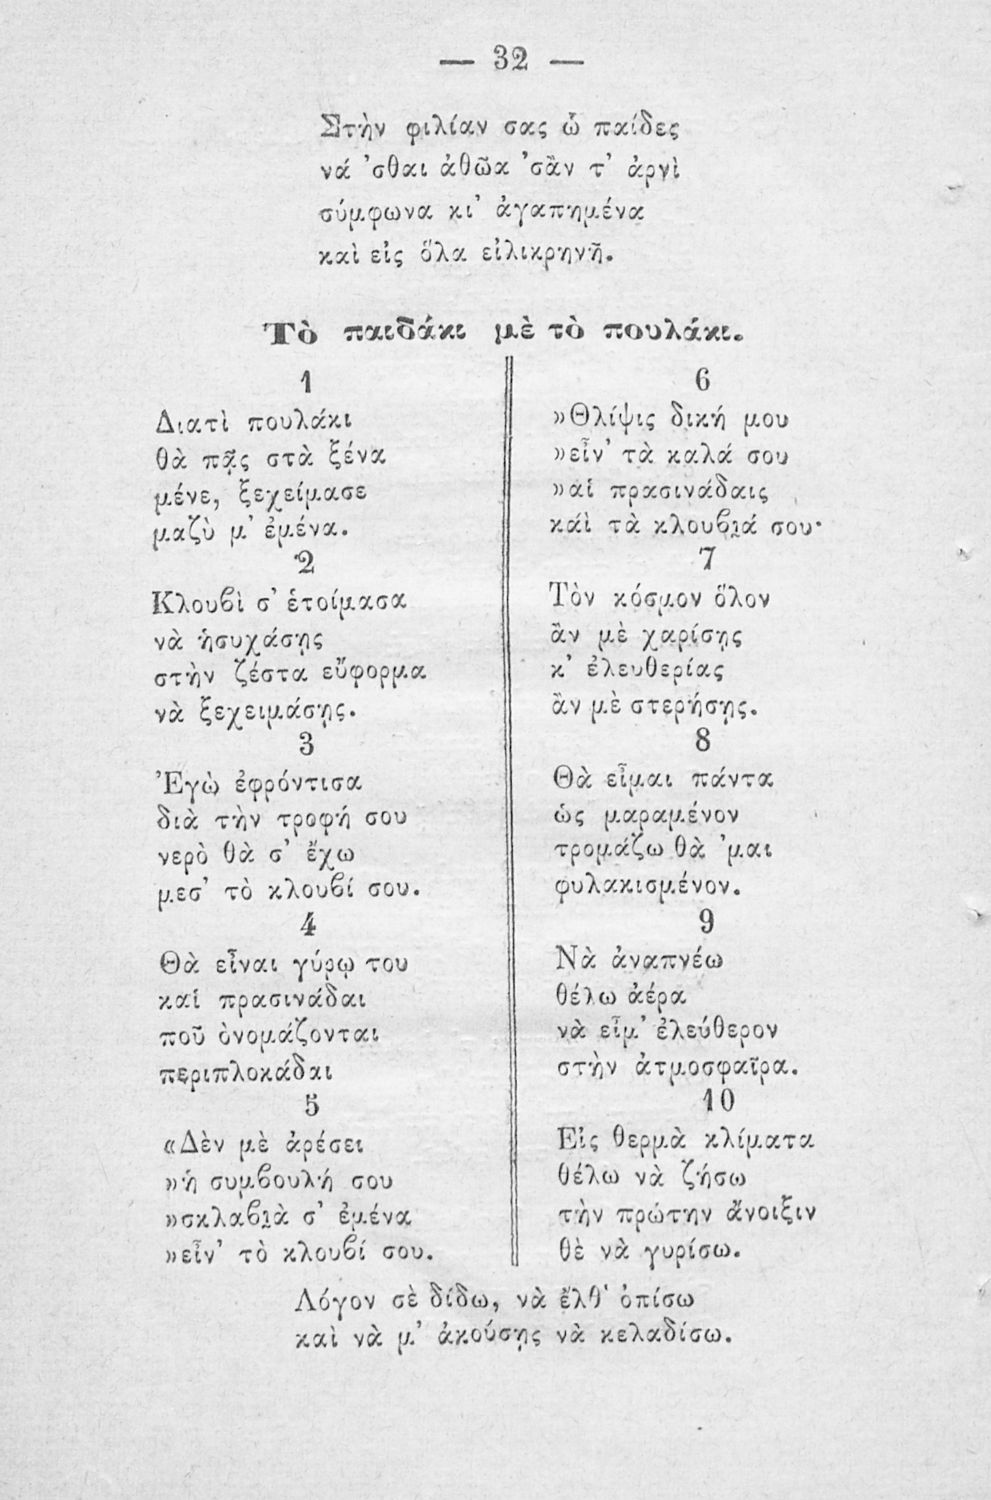 — 32 —
Στὴν φιλίαν σας ὦ παίδες
νά 'σθαι ἀθῶα 'σὰν τ' ἀρνὶ
σύμφωνα κι' ἀγαπημένα
καὶ εἰς ὅλα εἰλικρηνῆ.
Τὸ παιδάκι μὲ τὸ πουλάκι.
1
Διατὶ πουλάκι
θὰ πᾷς στὰ ξένα
μένε, ξεχείμασε
μαζὺ μ' ἐμένα.
2
Κλουβὶ σ' ἑτοίμασα
νὰ ἡσυχάσῃς
στὴν ζέστα εὔφορμα
νὰ ξεχειμάσῃς.
3
Ἐγὼ ἐφρόντισα
διὰ τὴν τροφή σου
νερὸ θὰ σ' ἔχω
μεσ' τὸ κλουβί σου.
4
Θὰ εἶναι γύρῳ του
καὶ πρασινάδαι
ποῦ ὀνομάζονται
περιπλοκάδαι
5
«Δὲν μὲ ἀρέσει
»ἡ συμβουλή σου
»σκλαβιὰ σ' ἐμένα
»εἶν' τὸ κλουβί σου.
6
»Θλίψις δική μου
»εἶν' τὰ καλά σου
»αἱ πρασινάδαις
καὶ τὰ κλουβιά σου·
7
Τὸν κόσμον ὅλον
ἂν μὲ χαρίσῃς
κ' ἐλευθερίας
ἂν μὲ στερήσῃς.
8
Θὰ εἶμαι πάντα
ὡς μαραμένον
τρομάζω θὰ 'μαι
φυλακισμένον.
9
Νὰ ἀναπνέω
θέλω ἀέρα
νὰ εἶμ' ἐλεύθερον
στὴν ἀτμοσφαῖρα.
10
Εἰς θερμὰ κλίματα
θέλω νὰ ζήσω
τὴν πρώτην ἄνοιξιν
θὲ νὰ γυρίσω.
Λόγον σὲ δίδω, νὰ ἔλθ' ὀπίσω
καὶ νὰ μ' ἀκούσῃς νὰ κελαδίσω.